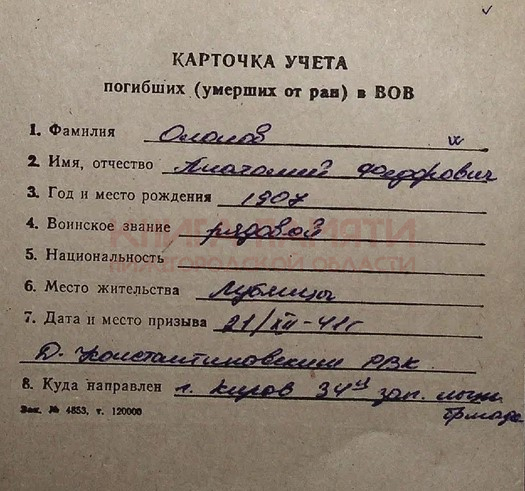 КАРТОЧКА УЧЕТА
погибших (умерших от ран) в ВОВ
1. Фамилия
2. Имя, отчество Анатолий Федорович
3. Год и место рождения 1907
4. Воинское звание рядовой
КНИГА ПАМЯТИ
НИЖЕГОРОДСКОЙ ОБЛАСТИ
5. Национальность
6. Место жительства
7. Дата и место призыва 21/XII-41г
Д. Константиновским РВК
8. Куда направлен г. Киров 34й зап. лыжн.
бригада
Зак. № 4853, т. 120000